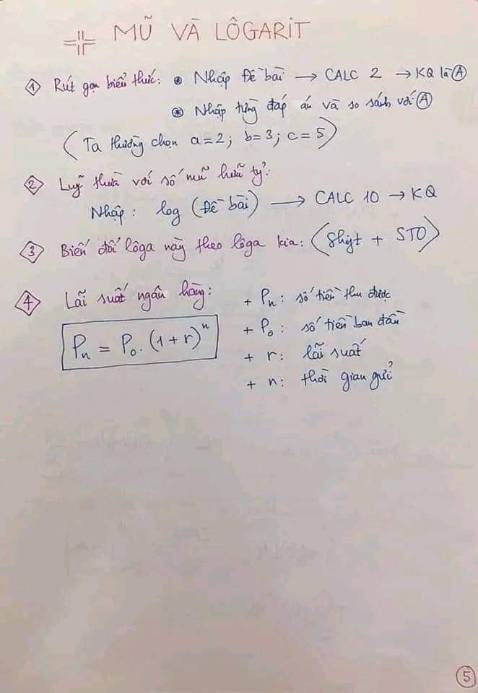 MŨ VÀ LÔGARIT
1 Rút gọn biểu thức: • Nhập Đề bài → CALC 2 → KQ là Ⓐ
• Nhập từng đáp án và so sánh với Ⓐ
(Ta thường chọn a=2; b=3; c=5)
2 Luỹ thừa với số mũ hữu tỷ:
Nhập: log (Đề bài) → CALC 10 → KQ
3 Biến đổi lôga này theo lôga kia: (Shift + STO)
4 Lãi suất ngân hàng:
Pn = Po. (1+r)^n
+ Pn: số tiền thu được
+ Po: số tiền ban đầu
+ r: lãi suất
+ n: thời gian gửi
5